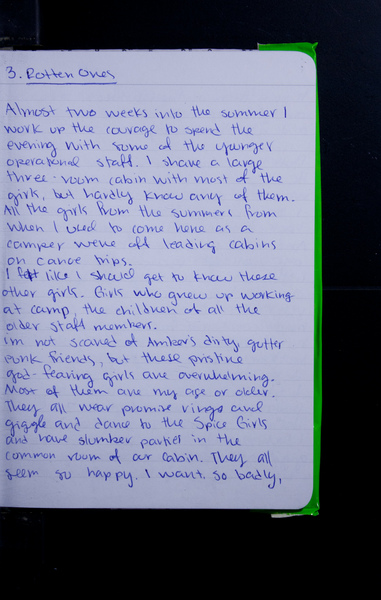 3. Rotten Ones
Almost two weeks into the summer I
work up the courage to spend the
evening with some of the younger
operational staff. I share a large
three-room cabin with most of the
girls, but hardly know any of them.
All the girls from the summers from
when I used to come here as a
camper were off leading cabins
on canoe trips.
I felt like I should get to know these
other girls. Girls who grew up working
at camp, the children of all the
older staff members.
I'm not scared of Amber's dirty gutter
punk friends, but these pristine
god-fearing girls are overwhelming.
Most of them are my age or older.
They all wear promise rings and
giggle and dance to the Spice Girls
and have slumber parties in the
common room of our cabin. They all
seem so happy. I want so badly,